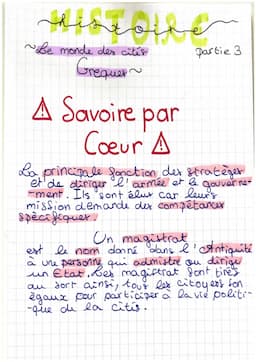 HISTOIRE
histoire
~ Le monde des cités ~ partie 3
Greques ~
⚠ Savoire par
Cœur ⚠
La principale fonction des stratèges
et de diriger l'armée et le gouverne-
-ment. Ils sont élus car leurs
mission demande des compétances
spécifiques.
Un magistrat
est le nom donné dans l'Antiquité
à une personne qui admistre ou dirige
un État. Les magistrat sont tirés
au sort ainsi, tous les citoyers son
égaux pour participer à la vie politi-
que de la cités.